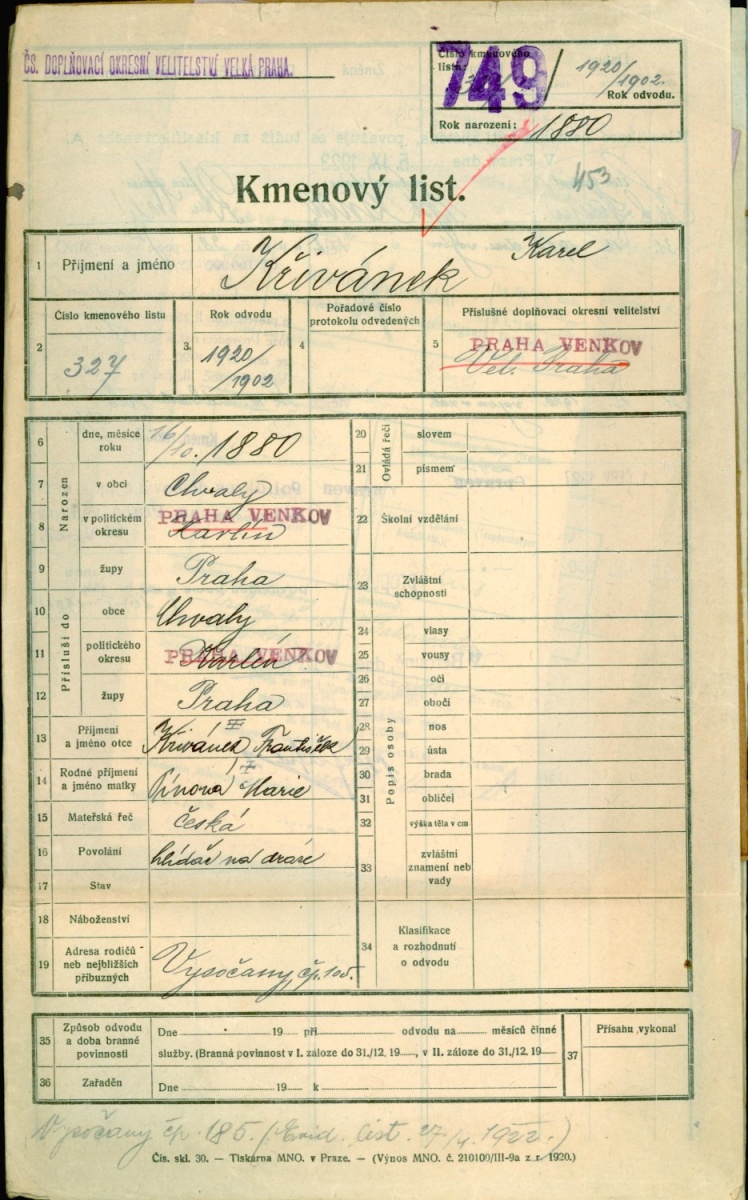 ČS. DOPLŇOVACÍ OKRESNÍ VELITELSTVÍ VELKÁ PRAHA.
Číslo kmenového
listu:
749
1920/1902.
Rok odvodu.
Rok narození: 1880
453
Kmenový list.
1 Příjmení a jméno Křivánek Karel
2 Číslo kmenového listu 327
3. Rok odvodu 1920/1902
4 Pořadové číslo protokolu odvedených
5 Příslušné doplňovací okresní velitelství
PRAHA VENKOV
Vel. Praha
Narozen
6 dne, měsíce roku 16/10. 1880
7 v obci Chvaly
8 v politickém okresu PRAHA VENKOV Karlín
9 župy Praha
Přísluší do
10 obce Chvaly
11 politického okresu PRAHA VENKOV Karlín
12 župy Praha
13 Příjmení a jméno otce Křivánek František
14 Rodné příjmení a jméno matky Marie
15 Mateřská řeč česká
16 Povolání hlídač na dráze
17 Stav
18 Náboženství
19 Adresa rodičů neb nejbližších příbuzných Vysočany, čp. 105.
Ovládá řeči
20 slovem
21 písmem
22 Školní vzdělání
23 Zvláštní schopnosti
Popis osoby
24 vlasy
25 vousy
26 oči
27 obočí
28 nos
29 ústa
30 brada
31 obličej
32 výška těla v cm
33 zvláštní znamení neb vady
34 Klasifikace a rozhodnutí o odvodu
35 Způsob odvodu a doba branné povinnosti
Dne 19 při odvodu na měsíců činné
služby. (Branná povinnost v I. záloze do 31./12. 19, v II. záloze do 31./12. 19
36 Zařaděn Dne 19 k
37 Přísahu vykonal
Vysočany čp. 185. (Evid. list. 27/4. 1922.)
Čís. skl. 30. — Tiskárna MNO. v Praze. — (Výnos MNO. č. 210100/III-9a z r. 1920.)